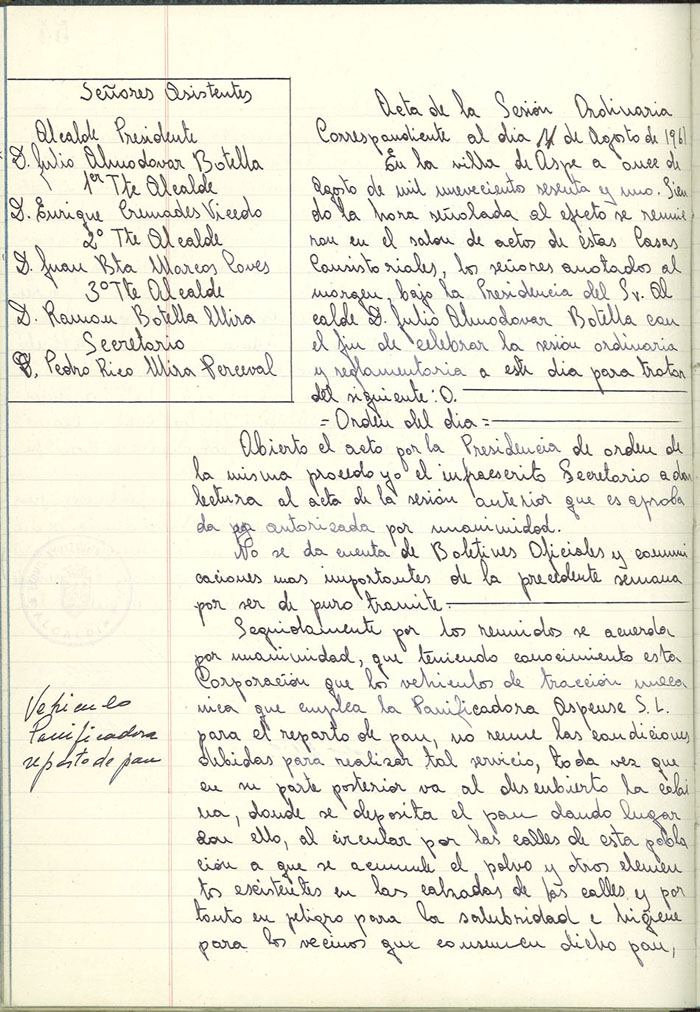 Señores Asistentes
Alcalde Presidente
D. Julio Almodovar Botella
1er Tte Alcalde
D. Enrique Cremades Vicedo
2º Tte Alcalde
D. Juan Bta Marcos Coves
3º Tte Alcalde
D. Ramon Botella Mira
Secretario
D. Pedro Rico Mira Perceval
Acta de la Sesión Ordinaria
Correspondiente al dia 11 de Agosto de 1961
En la villa de Aspe a once de
Agosto de mil nuevecientos sesenta y uno. Sien
do la hora señalada al efecto se reunie
ron en el salon de actos de estas Casas
Consistoriales, los señores anotados al
margen, bajo la Presidencia del Sr. Al
calde D. Julio Almodovar Botella con
el fin de celebrar la sesión ordinaria
y reglamentaria a este dia para tratar
del siguiente: O.
= Orden del dia =
Abierto el acto por la Presidencia de orden de
la misma procedo yo el infraescrito Secretario a dar
lectura al acta de la sesión anterior que es aproba
da autorizada por unanimidad.
No se da cuenta de Boletines Oficiales y comuni
caciones mas importantes de la precedente semana
por ser de puro tramite.
Seguidamente por los reunidos se acuerda
por unanimidad, que teniendo conocimiento esta
Corporación que los vehiculos de tracción meca
nica que emplea la Panificadora Aspense S. L.
para el reparto de pan, no reune las condiciones
debidas para realizar tal servicio, toda vez que
en su parte posterior va al descubierto la cabi
na, donde se deposita el pan dando lugar
con ello, al circular por las calles de esta pobla
ción a que se acumule el polvo y otros elemen
tos existentes en las calzadas de las calles y por
tanto en peligro para la salubridad e higiene
para los vecinos que consumen dicho pan,
Vehiculo
Panificadora
reparto de pan